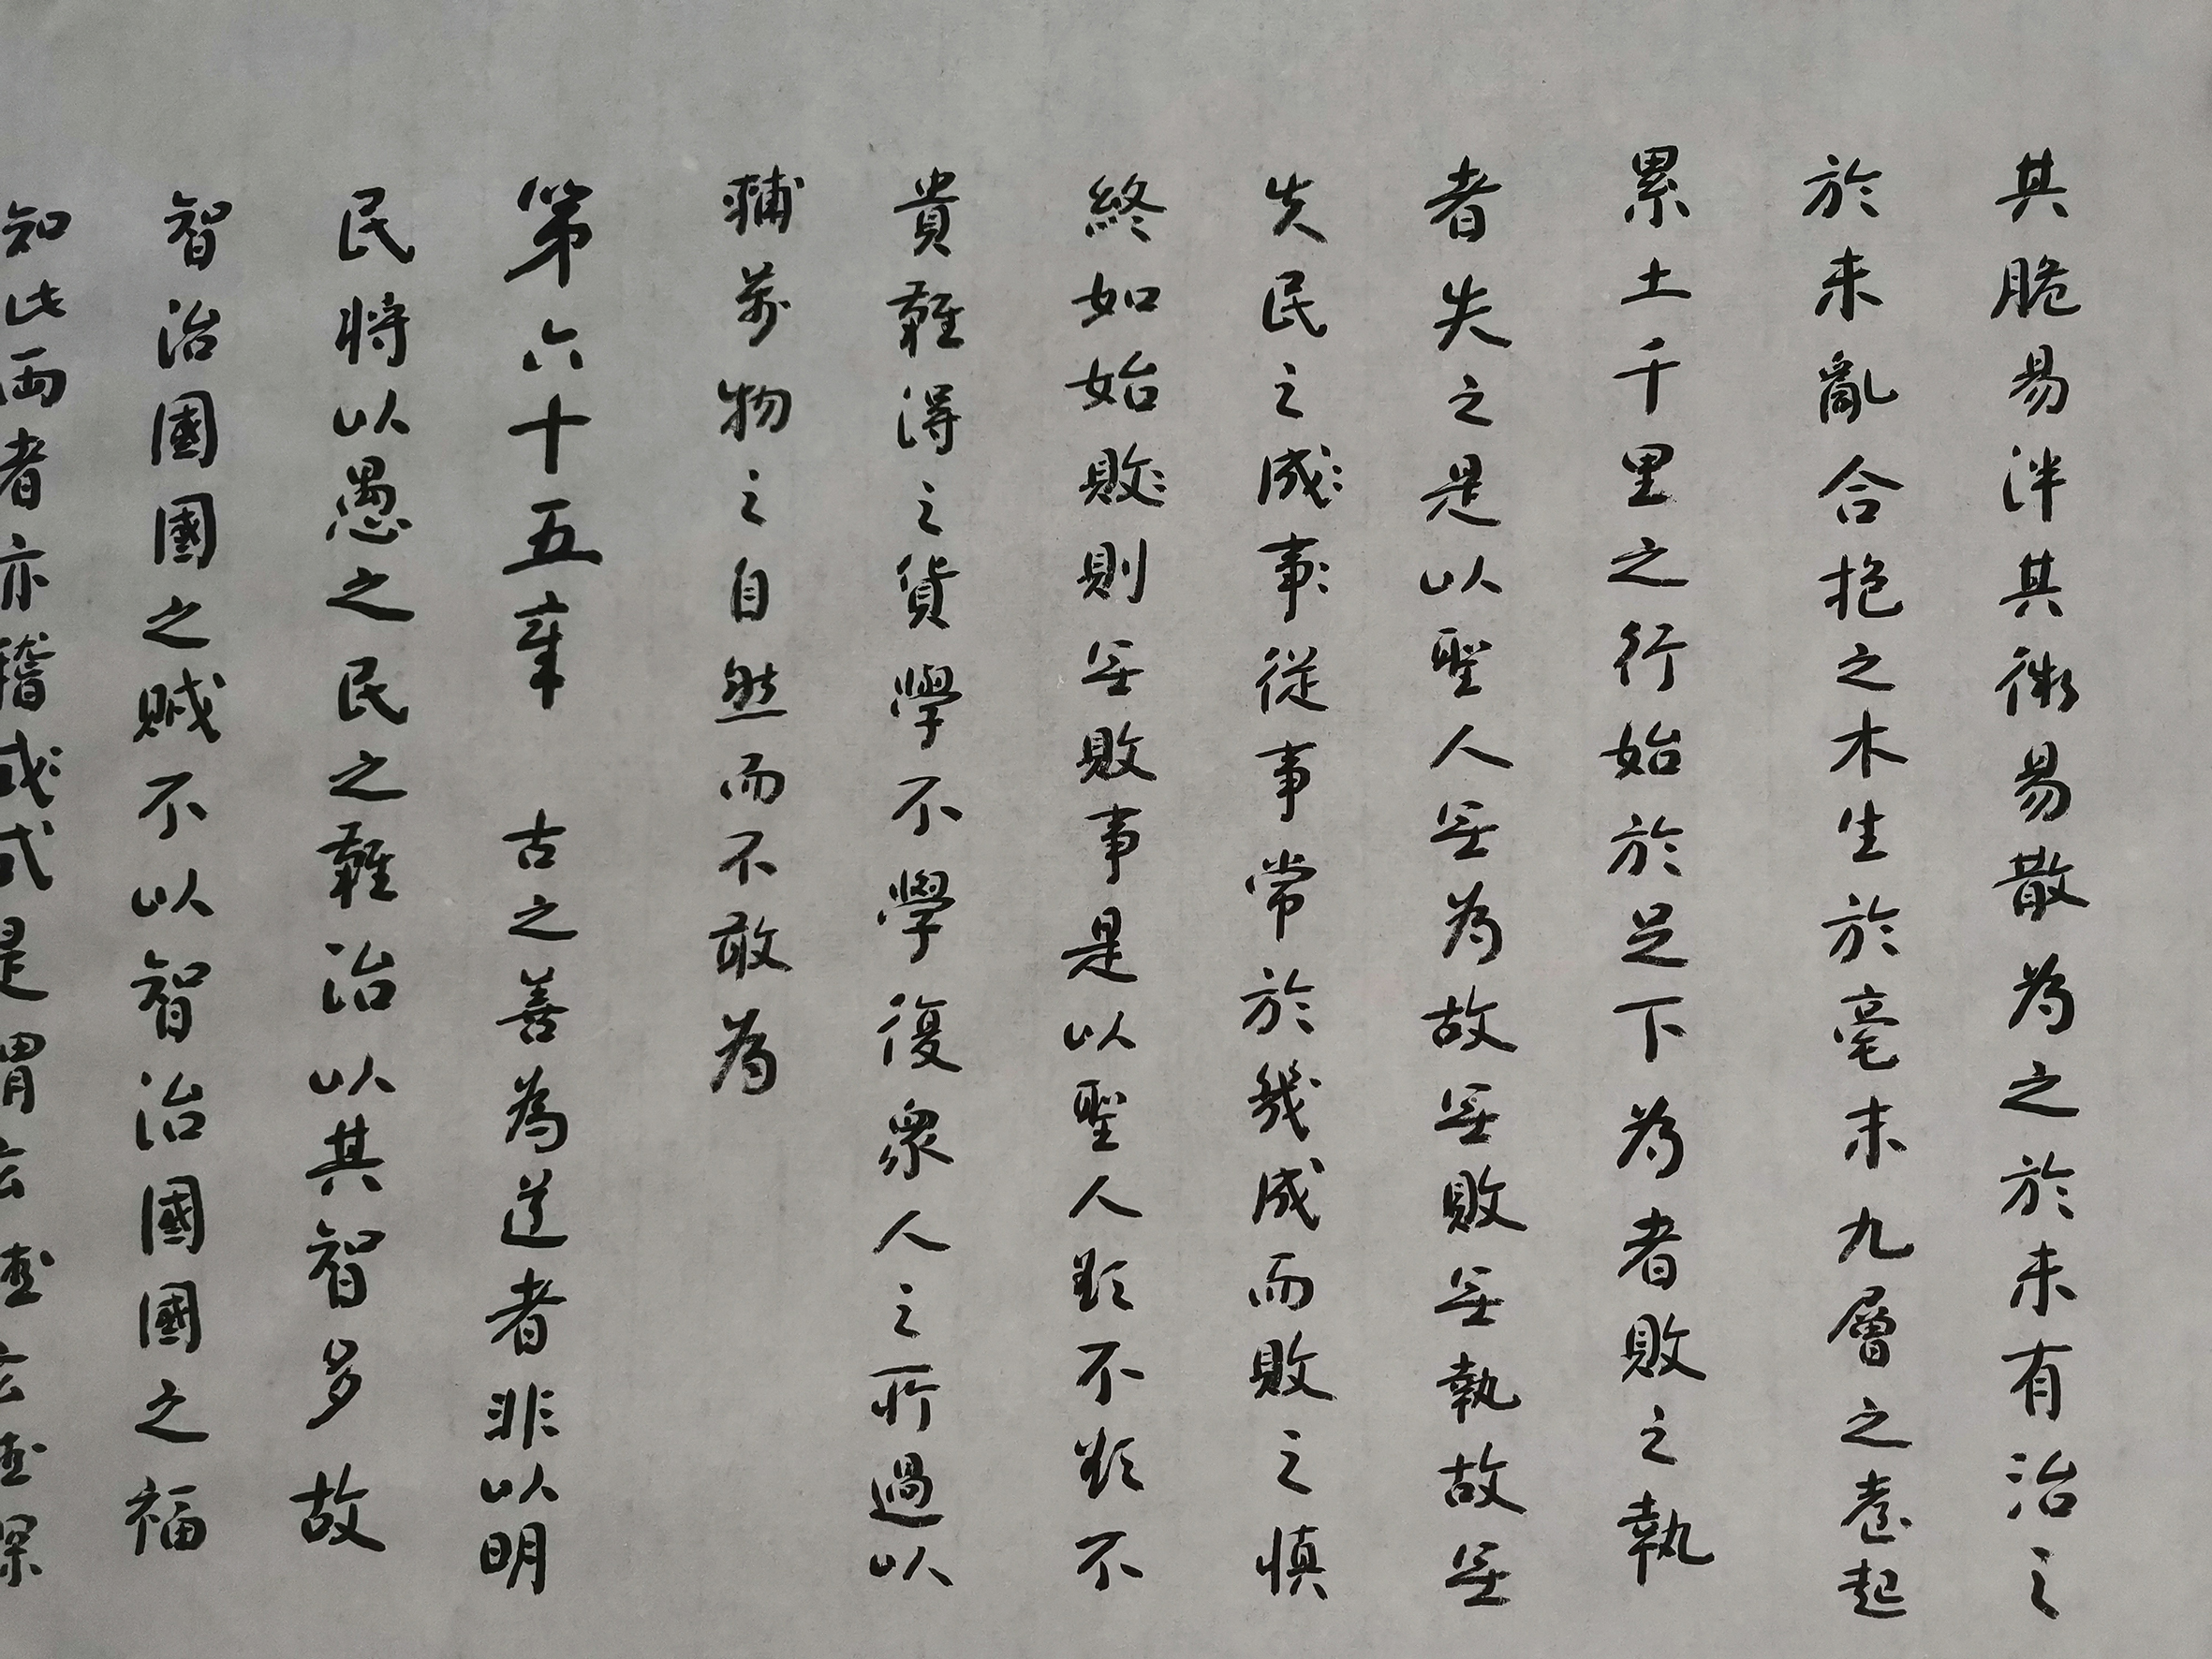 其脆易泮其微易散為之於未有治之
於未亂合抱之木生於毫末九層之臺起
累土千里之行始於足下為者敗之執
者失之是以聖人無為故無敗無執故無
失民之成事從事常於幾成而敗之慎
終如始敗則無敗事是以聖人欲不欲不
貴難得之貨學不學復衆人之所過以
輔萬物之自然而不敢為
第六十五章 古之善為道者非以明
民將以愚之民之難治以其智多故
智治國國之賊不以智治國國之福
知此兩者亦稽式是謂玄德玄德深